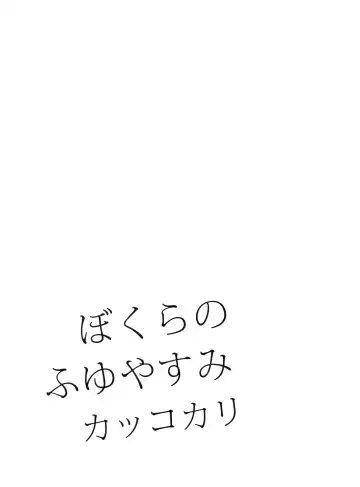 ぼくらの
ふゆやすみ
カッコカリ